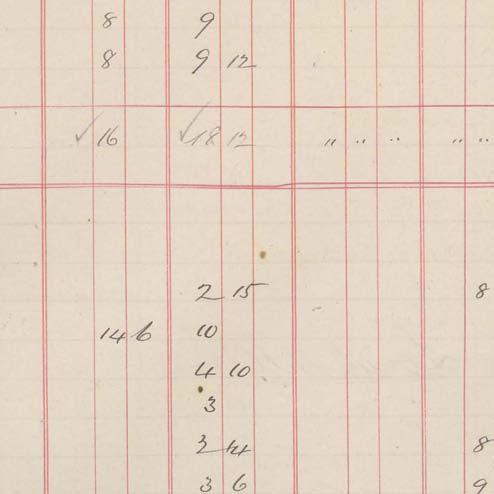 8 9
8 9 12
✓ 16 ✓ 18 12 " " " " "
2 15 8
14 6 10
4 10
3
2 14 8
3 6 9